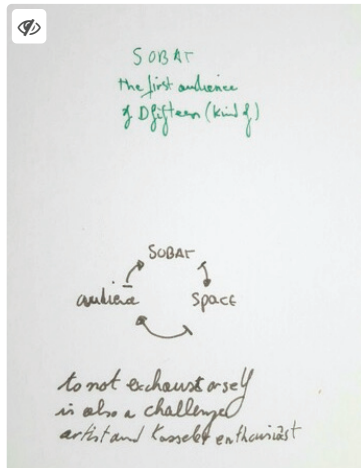 SOBAT
the first audience
of Dfifteen (kind of)
SOBAT
audience
space
to not exhaust orself
is also a challenge
artist and Kassel enthusiast